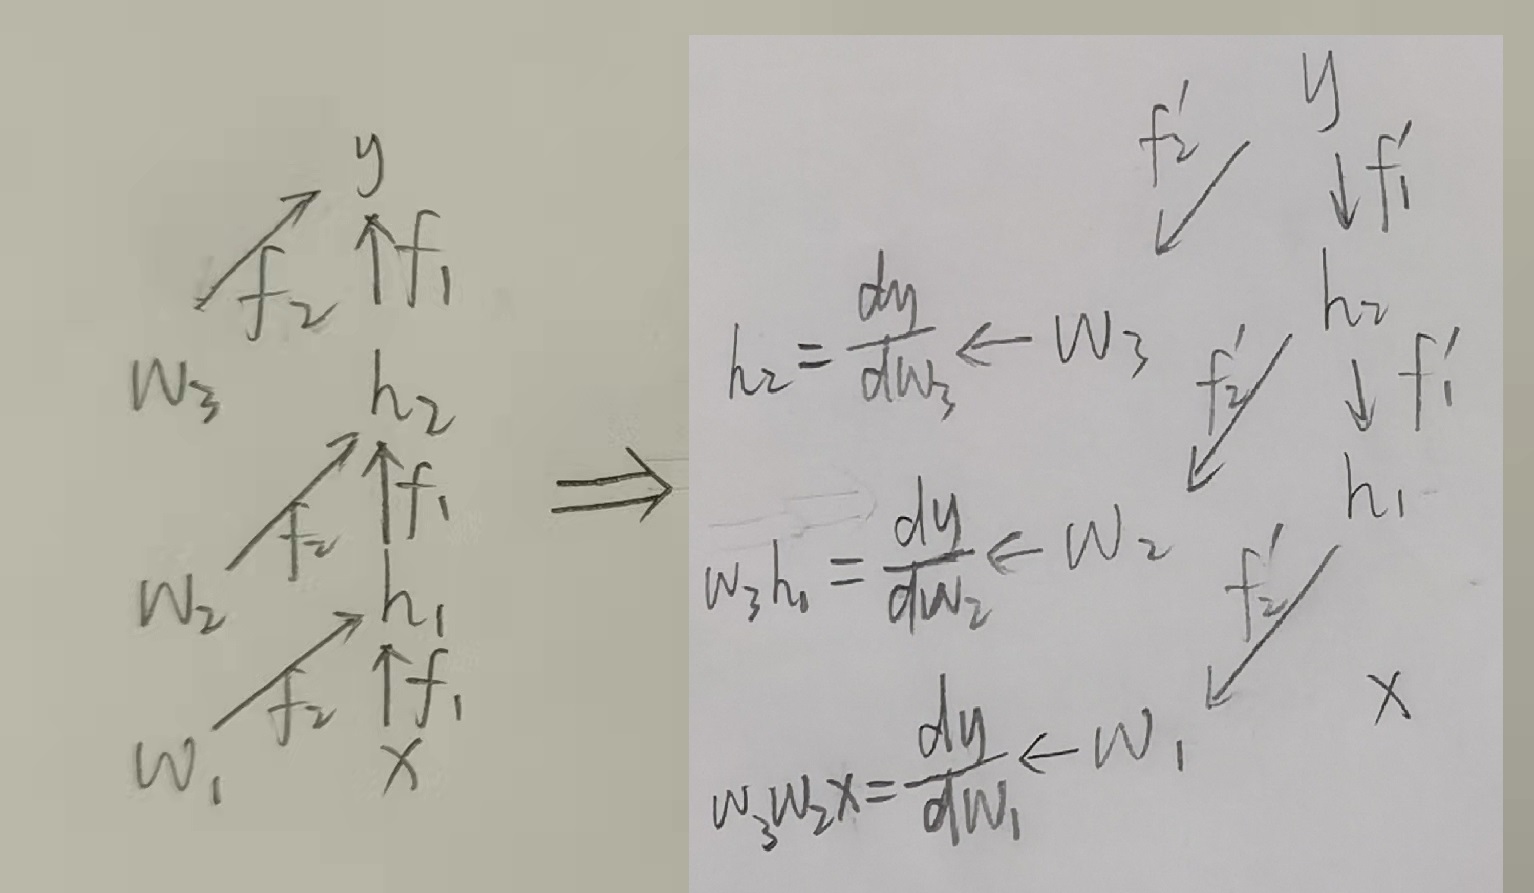 y
f₂ f₁
w₃ h₂
f₂ f₁
w₂ h₁
f₂ f₁
w₁ x
⇒
y
f₂′ f₁′
h₂ = dy/dw₃ ← w₃ h₂
f₂′ f₁′
w₃h₁ = dy/dw₂ ← w₂ h₁
f₂′
w₃w₂x = dy/dw₁ ← w₁ x